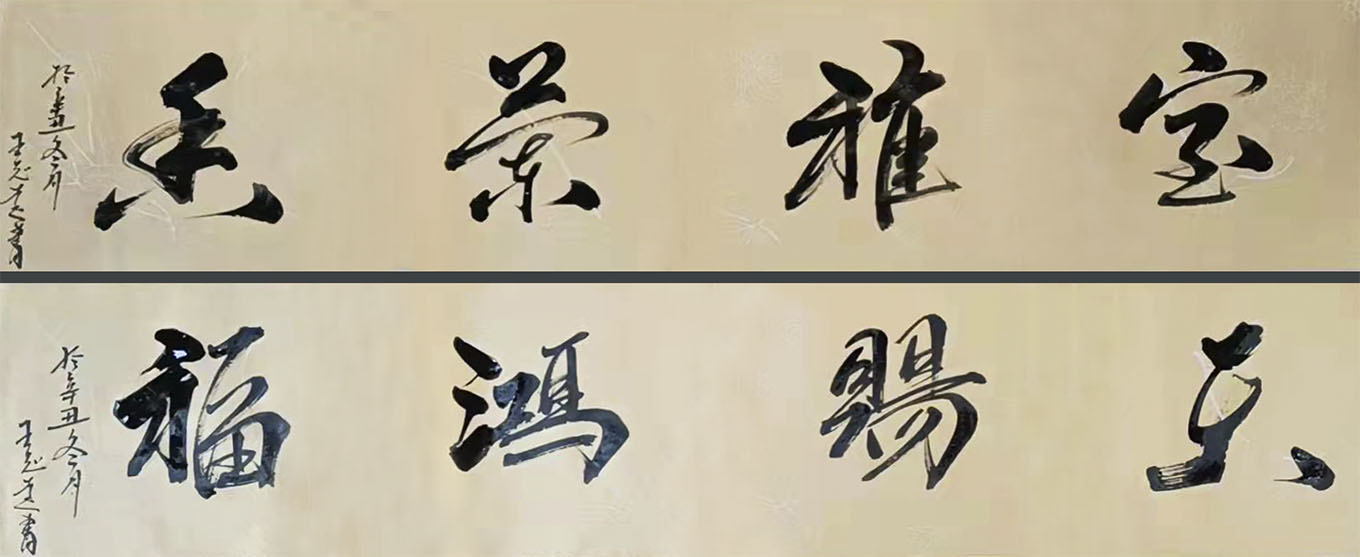 室雅蘭香
於辛丑冬月
王志遠書
天賜鴻福
於辛丑冬月
王志遠書